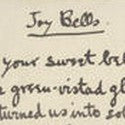 Joy Bells.
your sweet bel
e green-vistad gl
turned us into sol